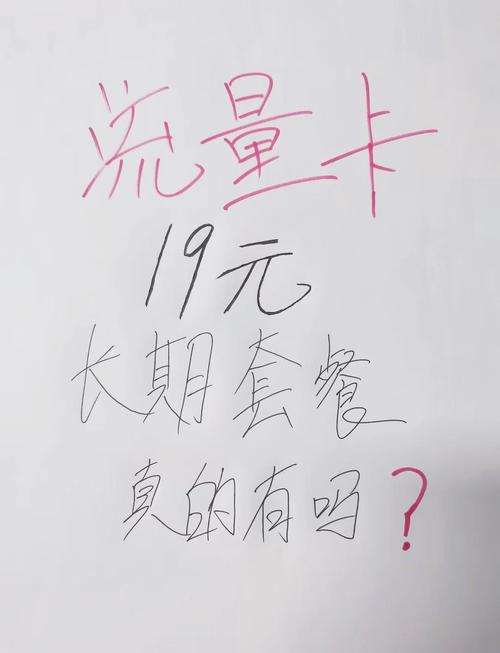 流量卡
19元
长期套餐
真的有吗？